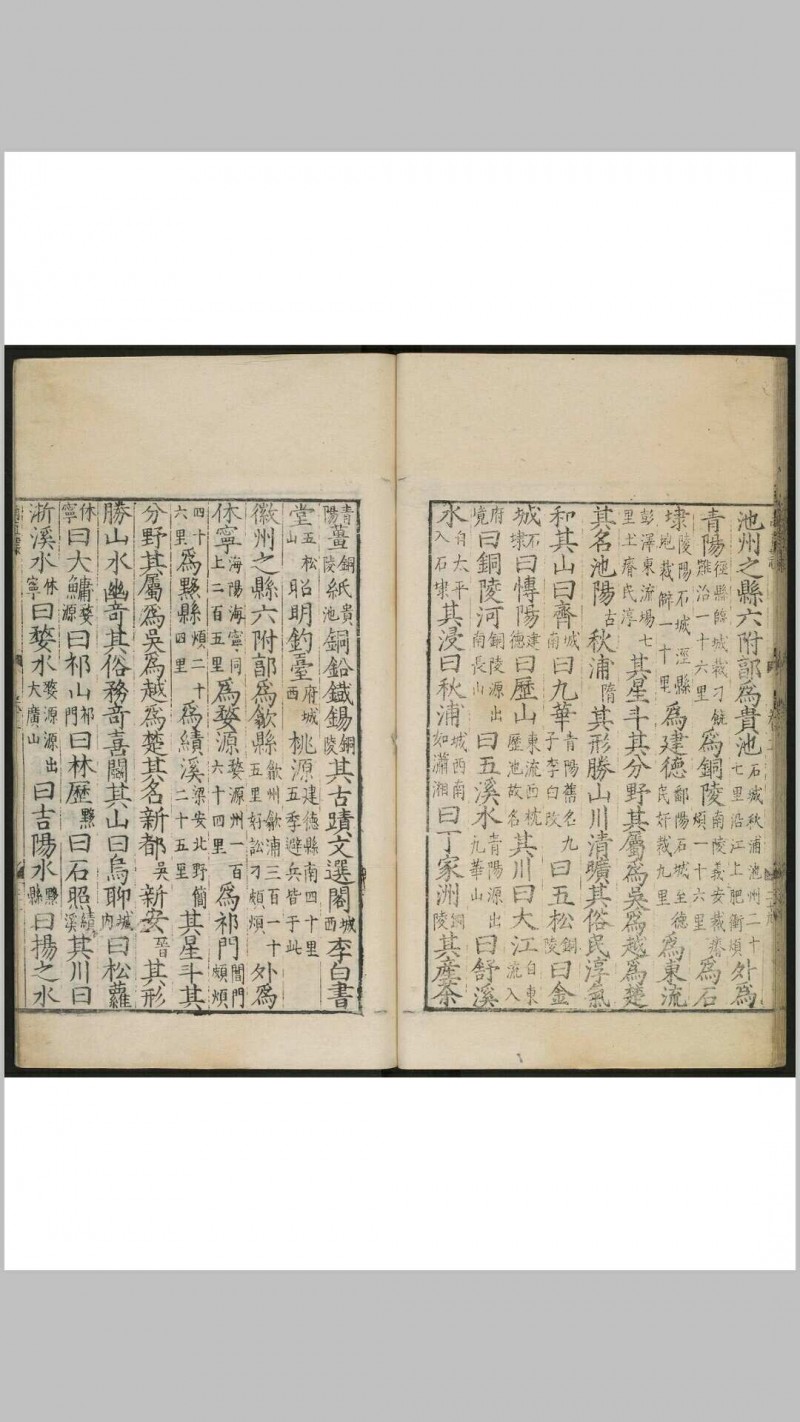 池州之縣六附郭爲貴池石城秋浦池州二十七里沿江上肥衝煩外爲
青陽徑縣臨城裁刁銳雜治一十六里爲銅陵南陵義安裁煩一十六里爲石
埭陵陽石城涇縣地裁僻一十里爲建德鄱陽石城至德民奸裁九里爲東流
彭澤東流場七里土瘠民淳其星斗其分野其屬爲吳爲越爲楚
其名池陽古秋浦隋其形勝山川清曠其俗民淳氣
和其山曰齊城南曰九華青陽舊名九子李白改曰五松銅陵曰金
城石埭曰博陽建德曰歷山東流西枕歷池故名其川曰大江自東流入
府境曰銅陵河銅陵源出南長山曰五溪水青陽源出九華山曰舒溪
水自太平入石埭其浸曰秋浦城西南如瀟湘曰丁家洲銅陵其產茶
青陽薑銅陵紙貴池銅鉛鐵錫銅其古蹟文選閣城西李白書
堂五松山昭明釣臺府城西桃源建德縣南四十里五季避兵皆于此
徽州之縣六附郭爲歙縣歙州歙浦三百一十五里好訟刁頗煩外爲
休寧海陽海寧同上二百五里爲婺源婺源州一百六十四里爲祁門閶門頗煩
四十六里爲黟縣煩二十四里爲績溪梁安北野簡二十五里其星斗其
分野其屬爲吳爲越爲楚其名新都吳新安晉其形
勝山水幽奇其俗務嗇喜鬬其山曰烏聊城內曰松蘿
休寧曰大鱅婺源曰祁山祁門曰林歷黟曰石照績溪其川曰
浙溪水休寧曰婺水婺源源出大廣山曰吉陽水黟縣曰揚之水